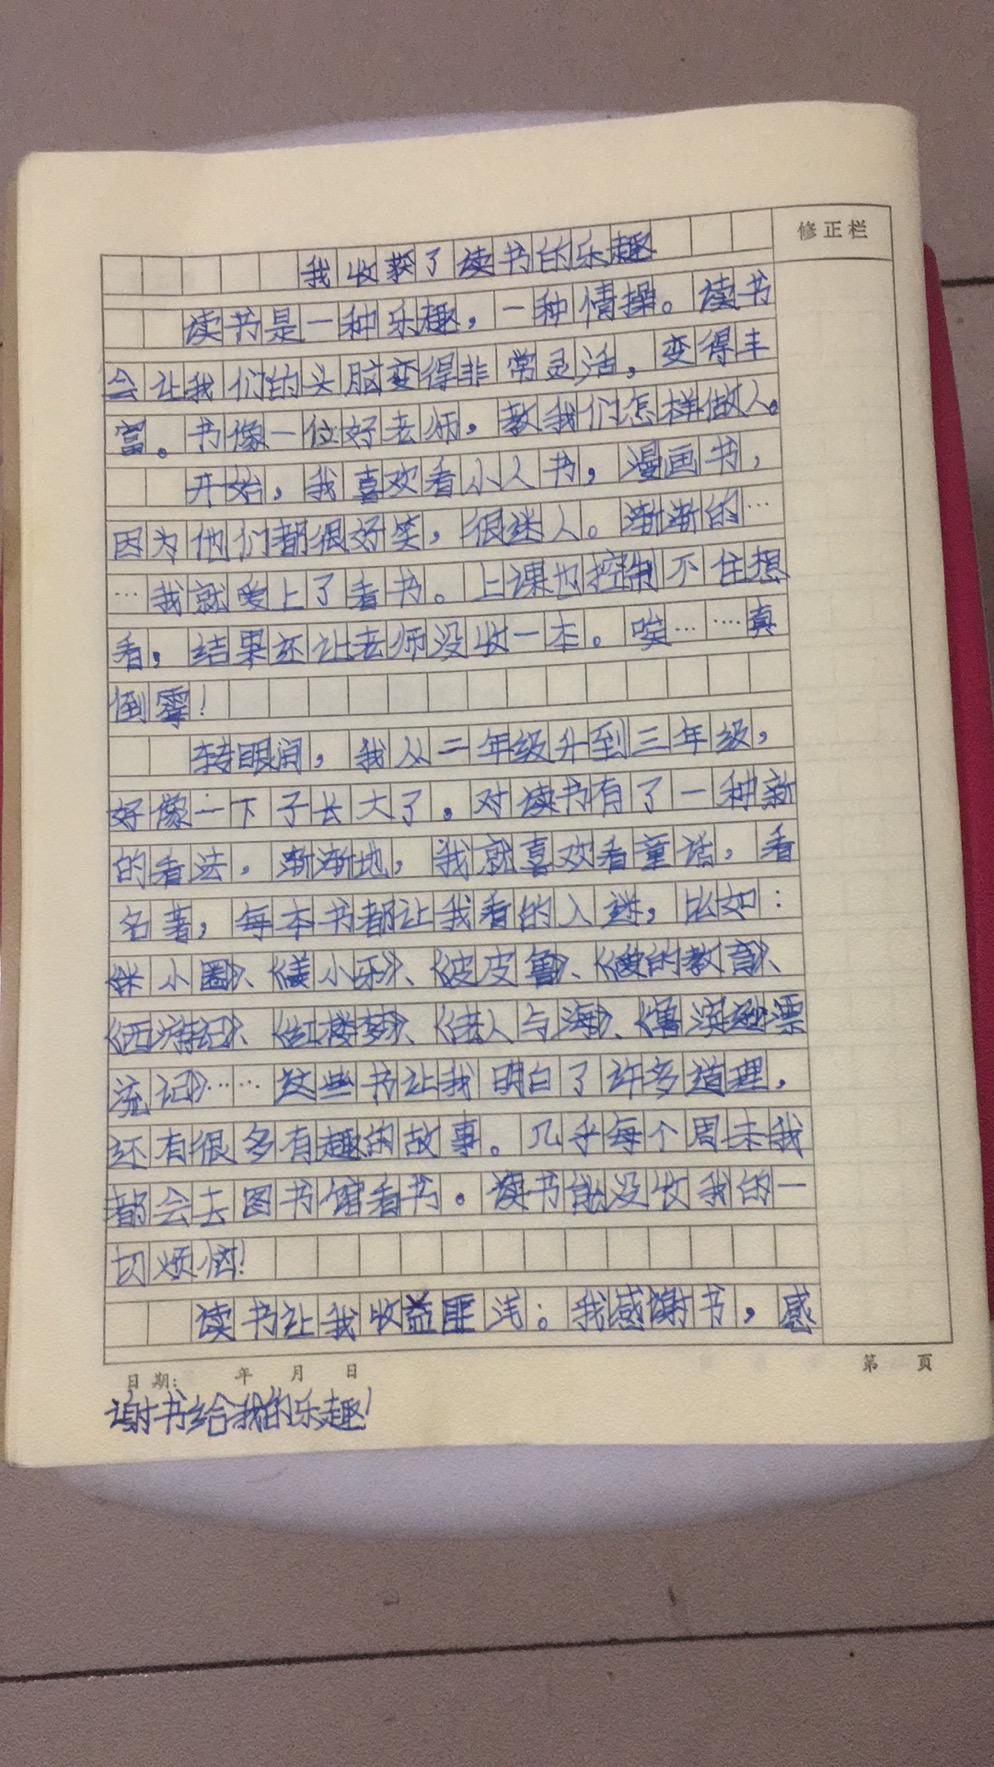 修正栏
我收获了读书的乐趣
读书是一种乐趣，一种情操。读书
会让我们的头脑变得非常灵活，变得丰
富。书像一位好老师，教我们怎样做人。
开始，我喜欢看小人书，漫画书，
因为他们都很好笑，很迷人。渐渐的…
…我就爱上了看书。上课也控制不住想
看，结果还让老师没收一本。唉……真
倒霉！
转眼间，我从二年级升到三年级，
好像一下子长大了。对读书有了一种新
的看法，渐渐地，我就喜欢看童话，看
名著，每本书都让我看的入迷，比如：
《米小圈》、《姜小牙》、《皮皮鲁》、《爱的教育》、
《西游记》、《红楼梦》、《老人与海》、《鲁滨逊漂
流记》……这些书让我明白了许多道理，
还有很多有趣的故事。几乎每个周末我
都会去图书馆看书。读书能没收我的一
切烦恼！
读书让我收益匪浅：我感谢书，感
日期： 年 月 日
第 页
谢书给我的乐趣！